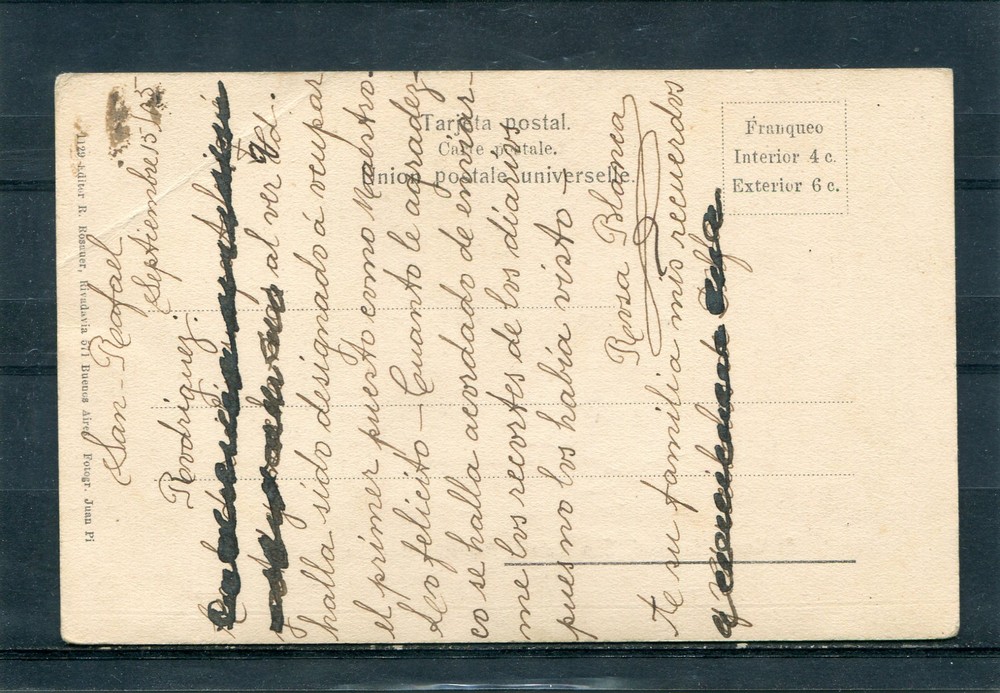 San-Rafael
Septiembre 15/15
Rodriguez.
al ver Vd.
halla sido designado á veupar
el primer puesto como Maestro.
Lo felicito - Cuanto le agradez-
co se halla acordado de enviar-
me los recortes de los diarios
pues no los habia visto -
Rosa Blanca
Te su familia mis recuerdos
Tarjeta postal.
Carte postale.
Union postale universelle.
Franqueo
Interior 4 c.
Exterior 6 c.
1129 Editor R. Rosauer, Rivadavia 571 Buenos Aires Fotogr. Juan Pi